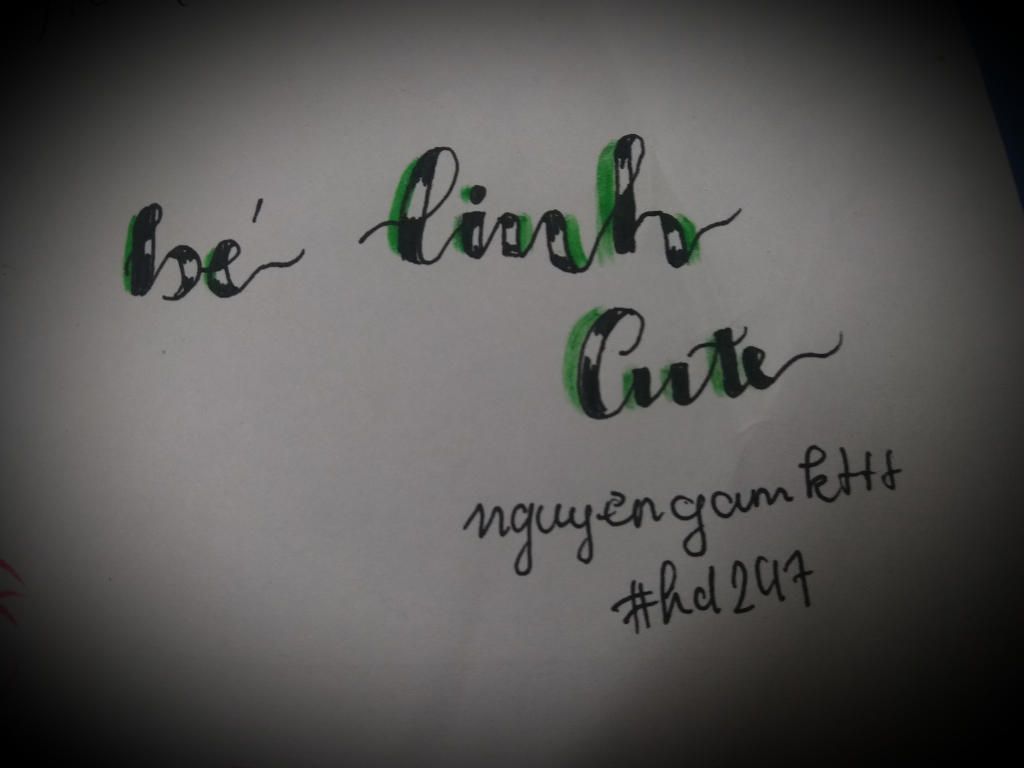 bé linh
Cute
nguyengamkHH
#hd247